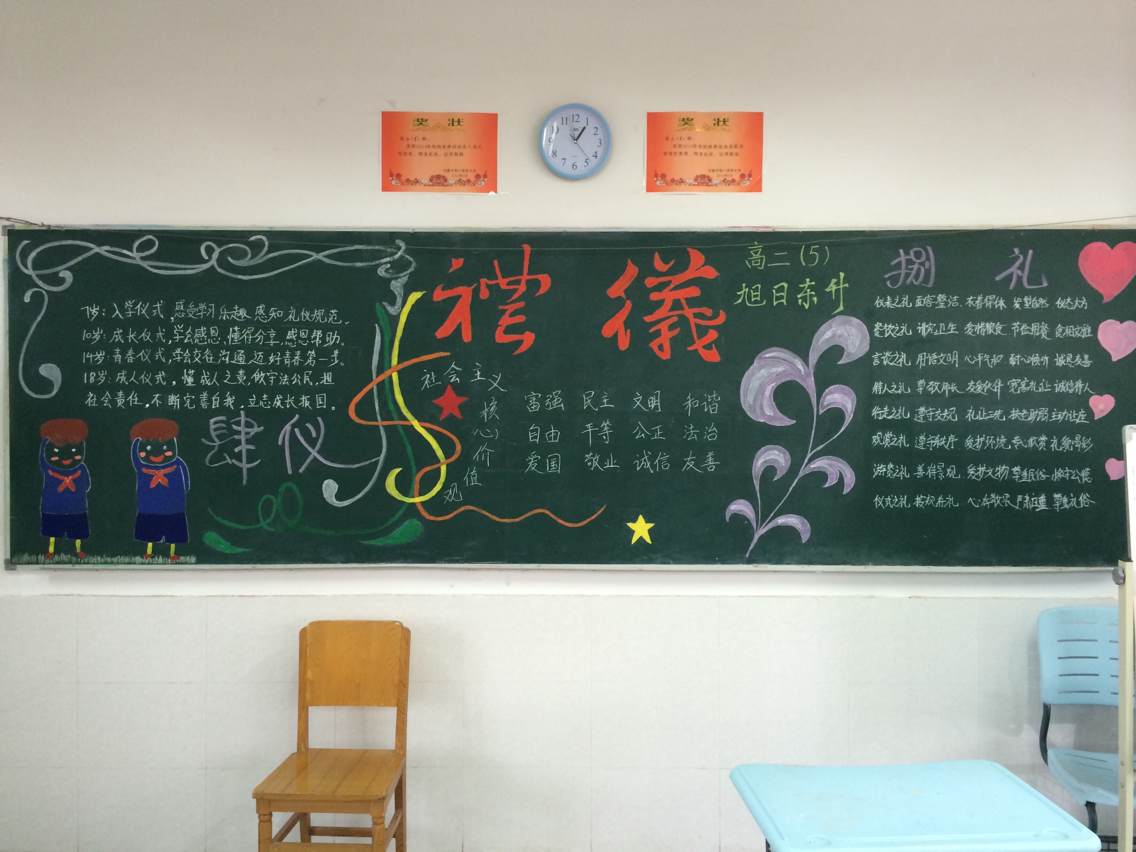 奖 状
12
1
2
3
4
5
6
7
8
9
10
11
奖 状
禮 儀
高二(5)
旭日东升
捌 礼
7岁:入学仪式,感受学习乐趣,感知礼仪规范.
10岁:成长仪式,学会感恩,懂得分享,感恩帮助.
14岁:青春仪式,学会交往沟通,迈好青春第一步.
18岁:成人仪式,懂成人之责,做守法公民,担
社会责任。不断完善自我,立志成长报国.
肆 仪
社会主义
核心价值观
富强 民主 文明 和谐
自由 平等 公正 法治
爱国 敬业 诚信 友善
仪表之礼 面容整洁 衣着得体 发型自然 仪态大方
餐饮之礼 讲究卫生 爱惜粮食 节俭用餐 食相文雅
言谈之礼 用语文明 心平气和 耐心倾听 诚恳友善
待人之礼 尊敬师长 友爱伙伴 宽容礼让 诚信待人
行走之礼 遵守交规 礼让三先 扶老助弱 主动让座
观赏之礼 遵守秩序 爱护环境 专心欣赏 礼貌喝彩
游览之礼 善待景观 爱护文物 尊重民俗 恪守公德
仪式之礼 按规行礼 心存敬畏 严肃庄重 尊重礼俗